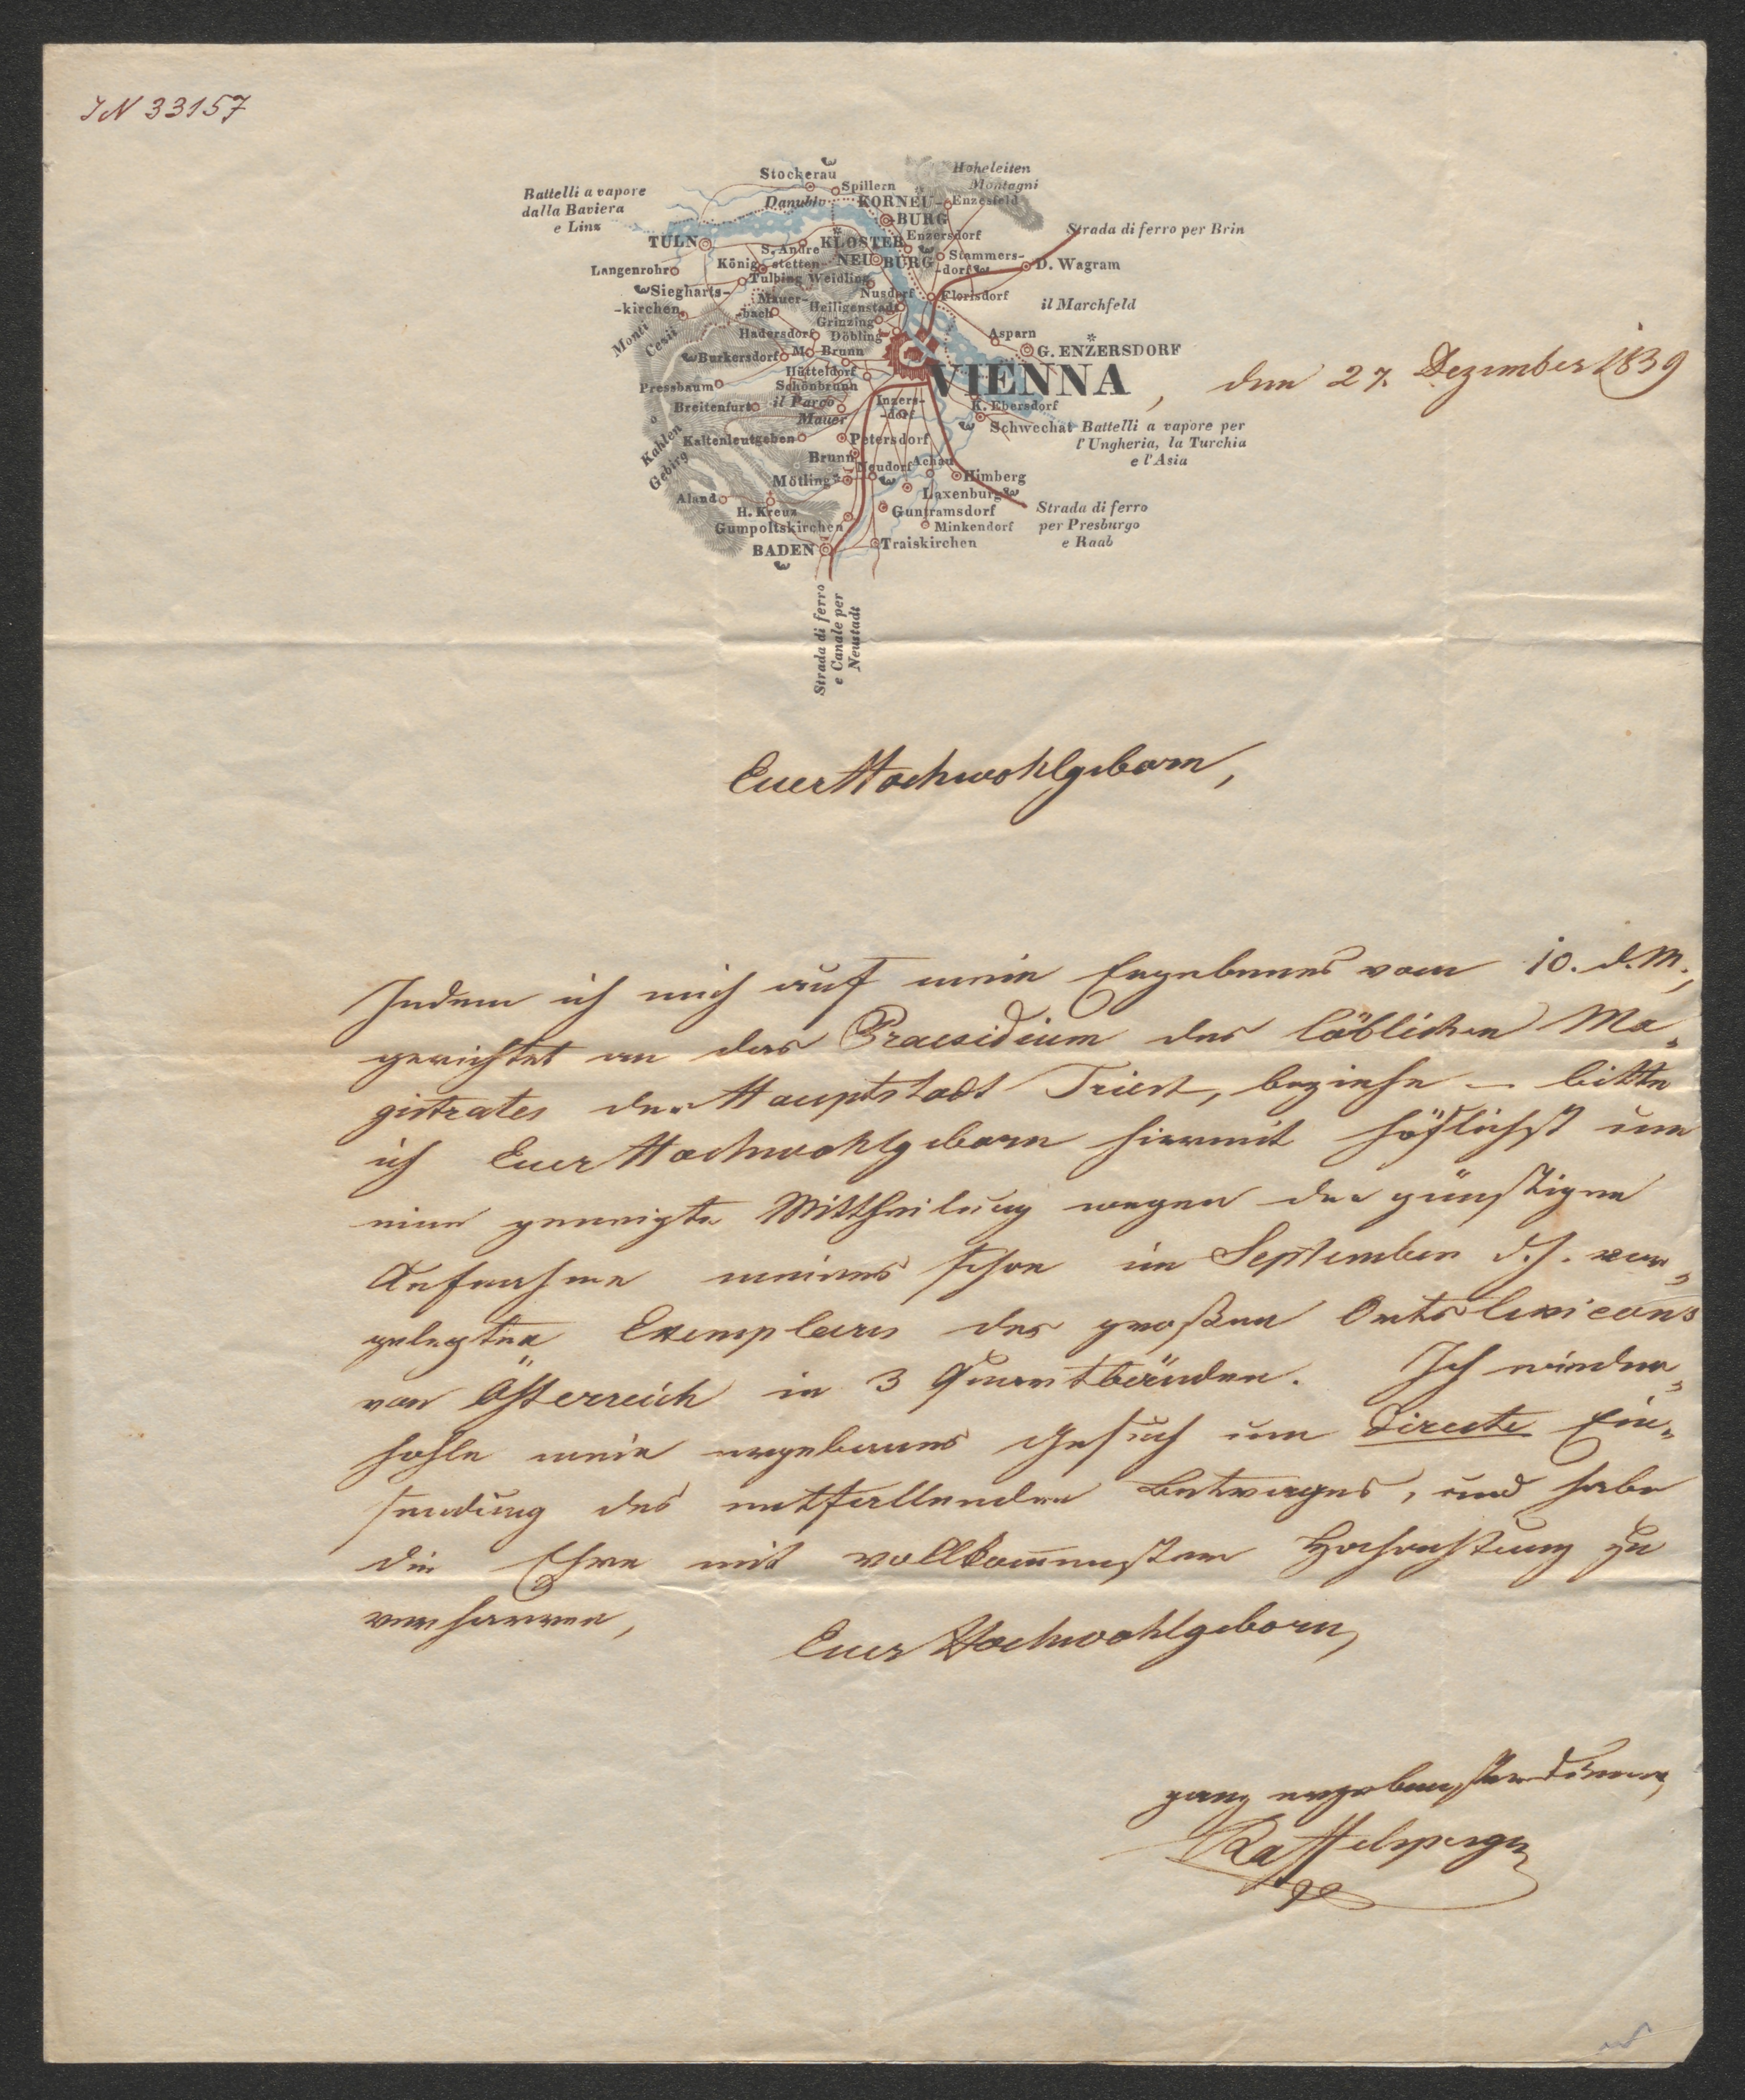 IN 33157
Stockerau
Hoheleiten
Montagni
Battelli a vapore
dalla Baviera
e Linz
Spillern
Danubio
KORNEU-
BURG
Enzesfeld
Strada di ferro per Brin
TULN
S. Andre
KLOSTER
NEUBURG
Enzersdorf
Stammers-
-dorf
D. Wagram
Langenrohr
König-
stetten
Tulbing
Weidling
Sieghárts-
-kirchen
Mauer-
-bach
Nusdorf
Florisdorf
il Marchfeld
Heiligenstadt
Grinzing
Monti
Cesii
Hadersdorf
Döbling
Asparn
G. ENZERSDORF
Burkersdorf
M. Brunn
Hütteldorf
VIENNA
, den 27. Dezember 1839
Pressbaum
Schönbrunn
Breitenfurt
il Parco
Mauer
Inzers-
-dorf
K. Ebersdorf
Schwechat
Battelli a vapore per
l'Ungheria, la Turchia
e l'Asia
o
Kahlen
Gebirg
Kaltenleutgeben
Petersdorf
Brunn
Neudorf
Achau
Himberg
Mötling
Laxenburg
Aland
H. Kreuz
Guntramsdorf
Strada di ferro
per Presburgo
e Raab
Gumpoltskirchen
Minkendorf
BADEN
Traiskirchen
Strada di ferro
e Canale per
Neustadt
Euer Hochwohlgeborn,
Indem ich mich auf mein Ergebenes vom 10. d. M.,
gerichtet an das Praesidium des löblichen Ma-
gistrates der Hauptstadt Triest, beziehe – bitte
ich Euer Hochwohlgeborn hiermit höflichst um
eine geneigte Mittheilung wegen der günstigen
Aufnahme meines schon im September d. J. vor-
gelegten Exemplars des großen Ortslexicons
von Österreich in 3 Quartbänden. Ich wieder-
hohle mein ergebenes Gesuch um directe Ein-
sendung des entfallenden Betrages, und habe
die Ehre mit vollkommenster Hochachtung zu
verharren,
Euer Hochwohlgeborn,
ganz ergebenster Diener,
Raffelsperger